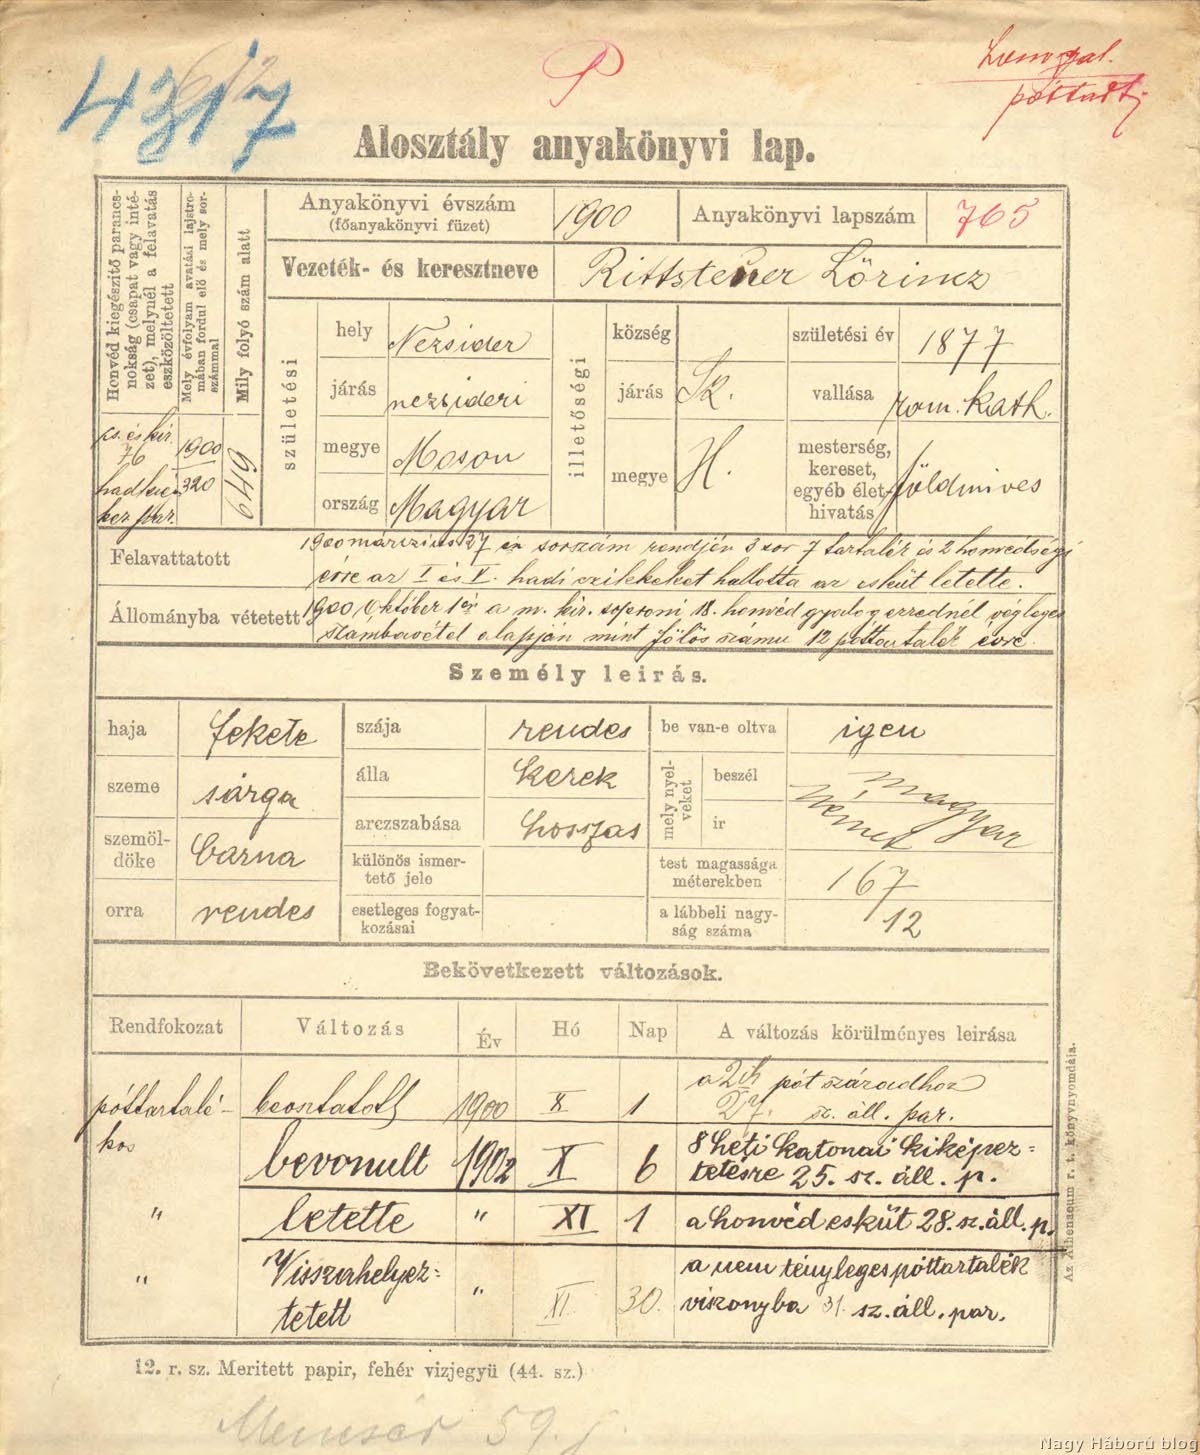 4317
612
P
póttart.
Alosztály anyakönyvi lap.
Honvéd kiegészítő parancs-
nokság (csapat vagy inté-
zet), melynél a felavatás
eszközöltetett
Mely évfolyam avatási lajstro-
mában fordul elő és mely sor-
számmal
Mily folyó szám alatt
cs. és kir.
76
hadkieg.
ker par.
1900
320
649
Anyakönyvi évszám
(főanyakönyvi füzet)
1900
Anyakönyvi lapszám
765
Vezeték- és keresztneve
Rittsteuer Lőrincz
születési
hely
Nezsider
járás
nezsideri
megye
Moson
ország
Magyar
illetőségi
község
járás
Sk.
megye
H.
születési év
1877
vallása
rom. kath.
mesterség,
kereset,
egyéb élet-
hivatás
földmives
Felavattatott
1900 márczius 27 én sorszám rendjén 3 sor 7 tartalék és 2 honvédségi
évre az I és V. hadi czikkeket hallotta az esküt letette.
Állományba vétetett
1900 Október 1én a m. kir. soproni 18. honvéd gyalog ezrednél végleges
számbavétel alapján mint fölös számu 12 póttartalék évre.
Személy leirás.
haja
fekete
szeme
sárga
szemöl-
döke
barna
orra
rendes
szája
rendes
álla
kerek
arczszabása
hosszas
különös ismer-
tető jele
esetleges fogyat-
kozásai
be van-e oltva
igen
mely nyel-
veket
beszél
ir
magyar
német
test magassága
méterekben
167
a lábbeli nagy-
ság száma
12
Bekövetkezett változások.
Rendfokozat
Változás
Év
Hó
Nap
A változás körülményes leirása
póttartalé-
kos
beosztatott
1900
X
1
a 2ik pót századhoz
sz. áll. par.
bevonult
1902
X
6
8 heti katonai kiképez=
tetésre 25. sz. áll. p.
"
letette
"
XI
1
a honvéd esküt 28. sz. áll. p.
"
Visszahelyez=
tetett
"
XI
30.
a nem tényleges póttartalék
viszonyba 31. sz. áll. par.
12. r. sz. Meritett papir, fehér vizjegyü (44. sz.)
Az Athenaeum r. t. könyvnyomdája.
59.
Nagy Háború blog